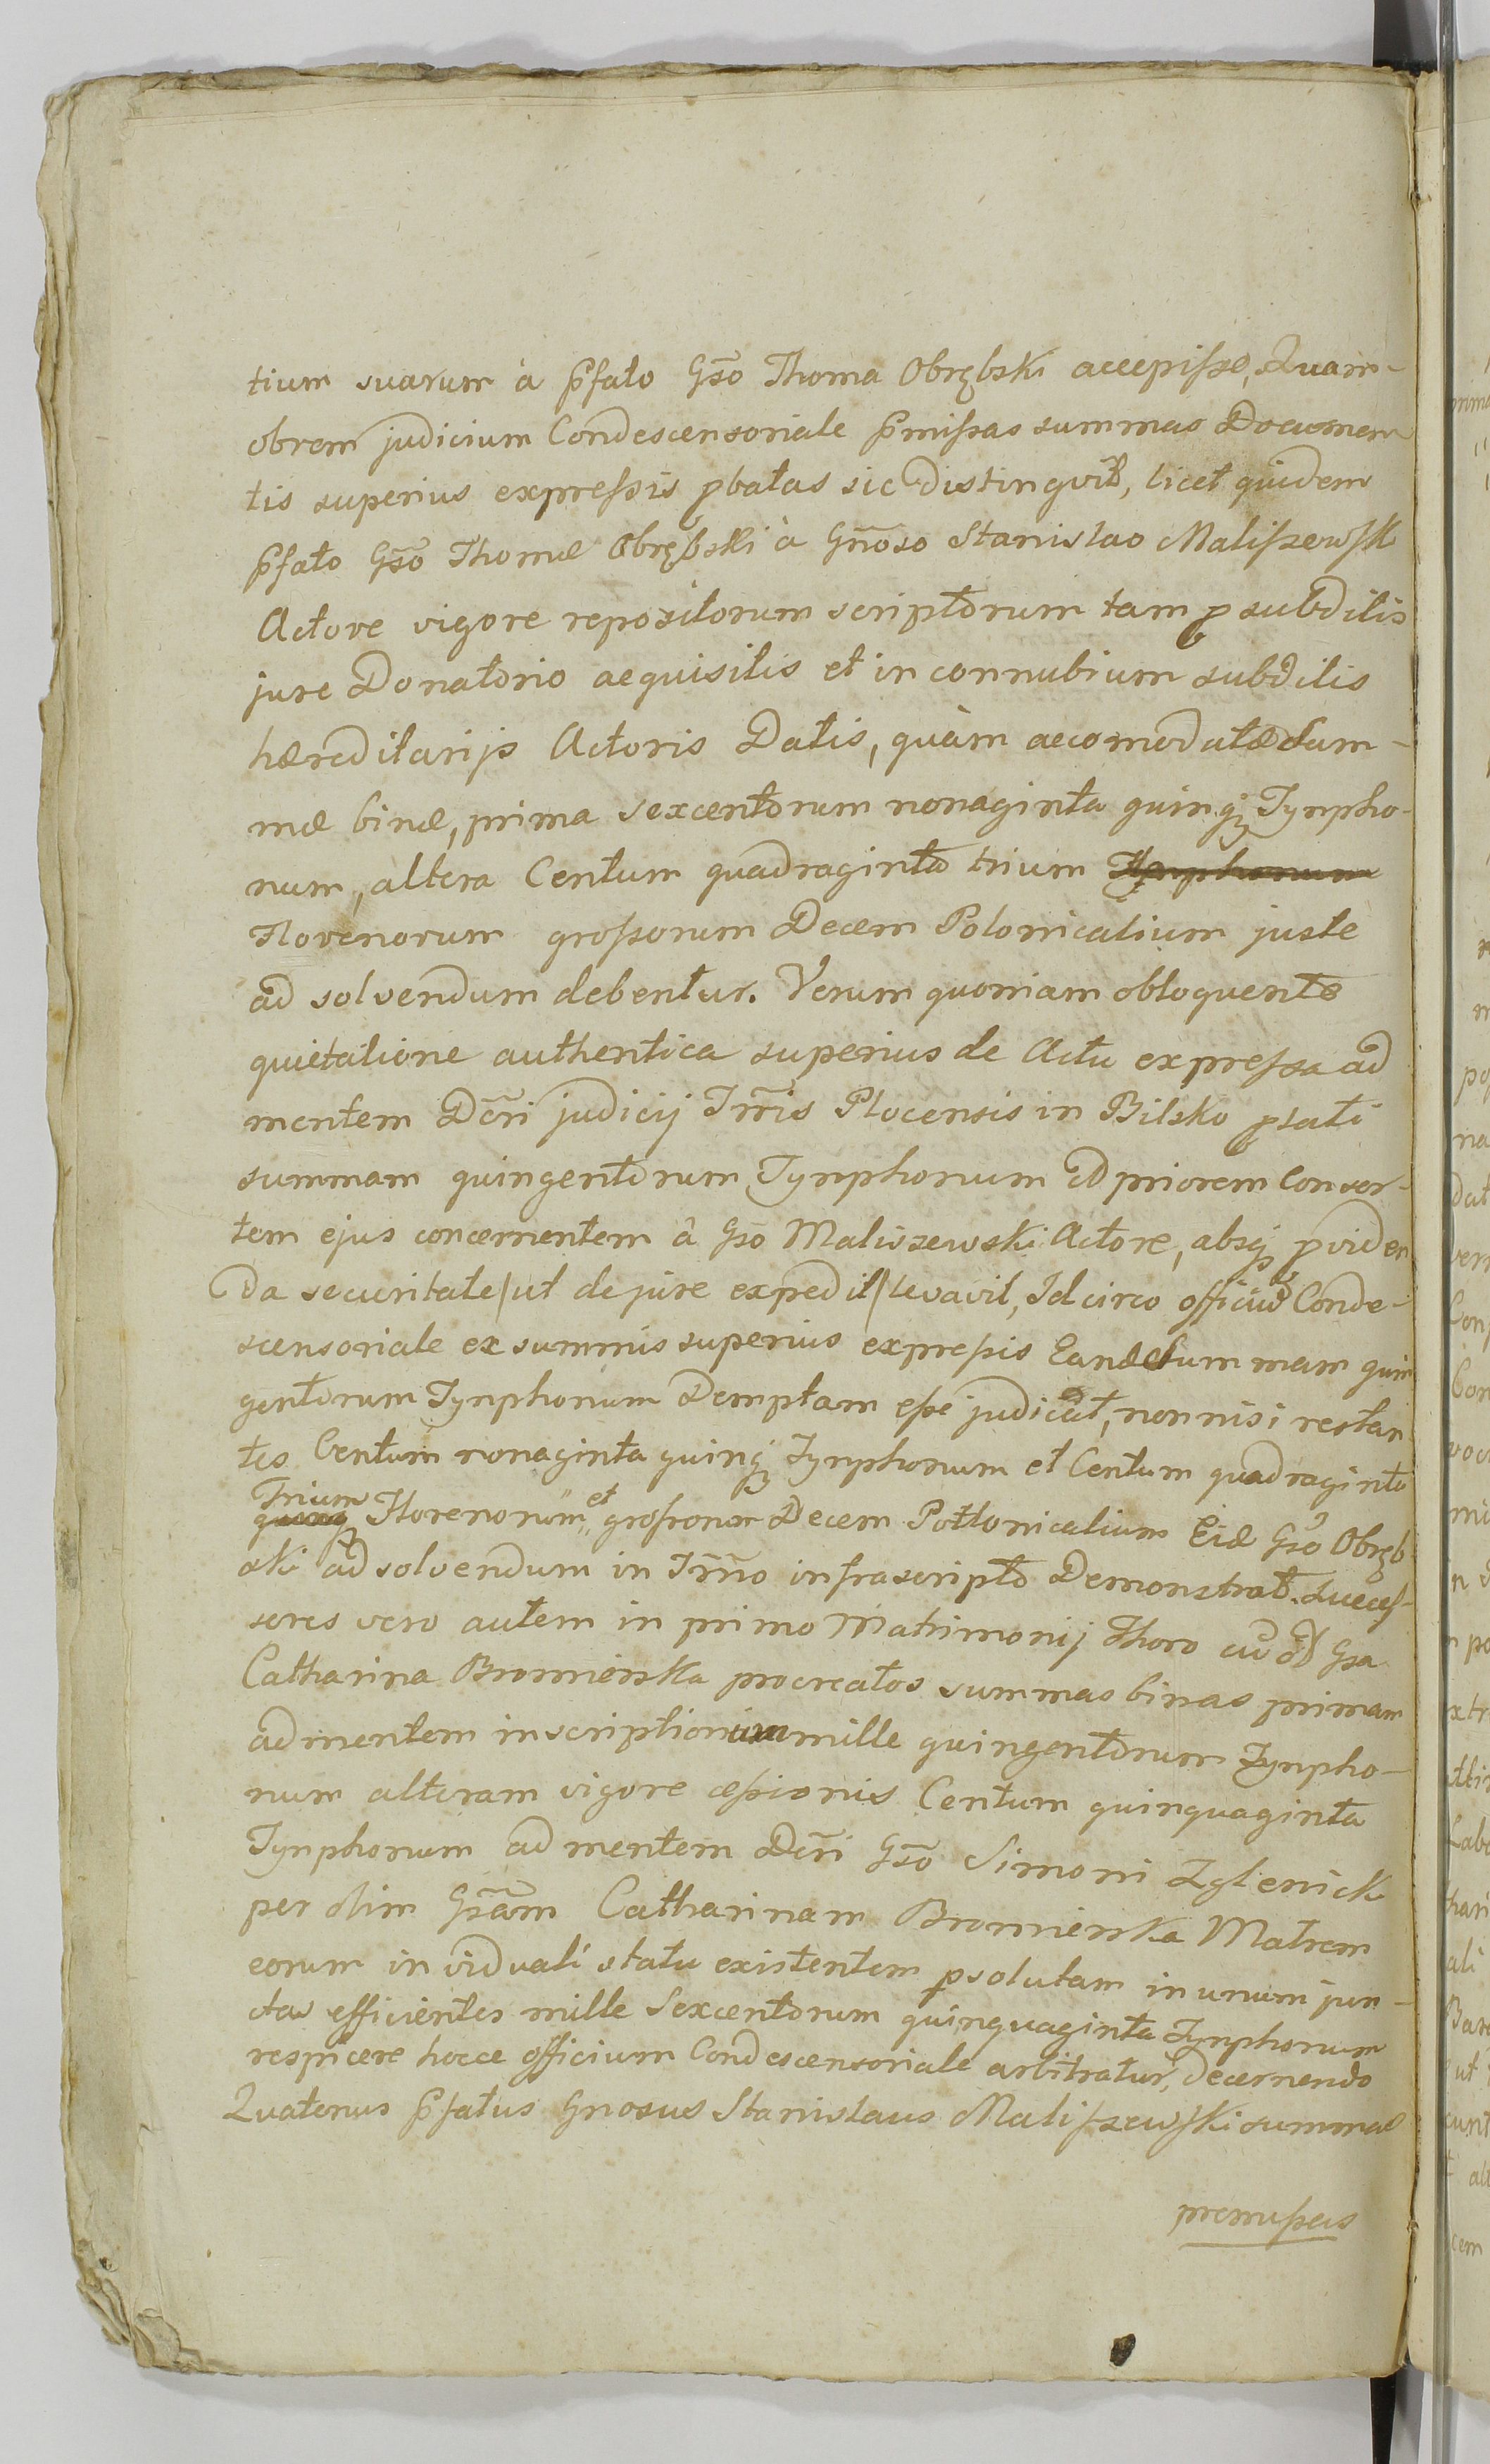 tium suarum à p̃fato Gs̃o Thoma Obrębski accepisse, Quam-
obrem judicium Condescensoriale p̃missas summas Documen
tis superius expressis pbatas sic distingvit, licet quidem
p̃fato Gs̃o Thomæ Obrębski à Gñoso Stanislao Maliszewski
Actore vigore repositorum scriptorum tam p subditis
jure Donatorio aequisitis et in connubium subditis
hæreditarijs Actoris Datis, quàm accomodatæ sum-
mæ binæ, prima sexcentorum nonaginta quinqz Tynpho-
num, altera Centum quadraginta trium Tynphonum
Florenorum grossorum Decem Polonicalium juste
ad solvendum debentur. Verum quoniam obloquente
quietatione authentica superius de Actu expressa ad
mentem Dcr̃i judicij Tr̃ris Plocensis in Bilsko plati
summam quingentorum Tynphonum ad priorem Consor-
tem ejus concernentem â Gs̃o Maliszewski Actore, absqz pviden
da securitate /ut de jure expedit/ levavit, Idcirco officiũ Conde-
scensoriale ex summis superius expressis Eandẽ summam quin
gentorum Tynphonum Demptam esse judicat, non nisi restan
tes Centum nonaginta quinqz Tynphonum et Centum quadraginta
Trium
quinqz Florenorum et grossorum Decem Pollonicalium Eidẽ Gs̃o Obręb
ski ad solvendum in Tr̃mo infrascripto Demonstrat. Succes-
sores vero autem in primo Matrimonij Thoro cũ Gsa
Catharina Bromierska procreatos summas binas primam
ad mentem inscriptionum mille quingentorum Tynpho-
num alteram vigore cessionis Centum quinquaginta
Tynphonum ad mentem Dcr̃i Gs̃o Simoni Zglenicki
per olim Gs̃am Catharinam Bromierska Matrem
eorum in viduali statu existentem psolutam in unum jun-
ctas efficientes mille Sexcentorum quinquaginta Tynphonum
respicere hocce officium Condescensoriale arbitratur, decernendo
Quatenus p̃fatus Gnosus Stanislaus Maliszewski summas
premissas